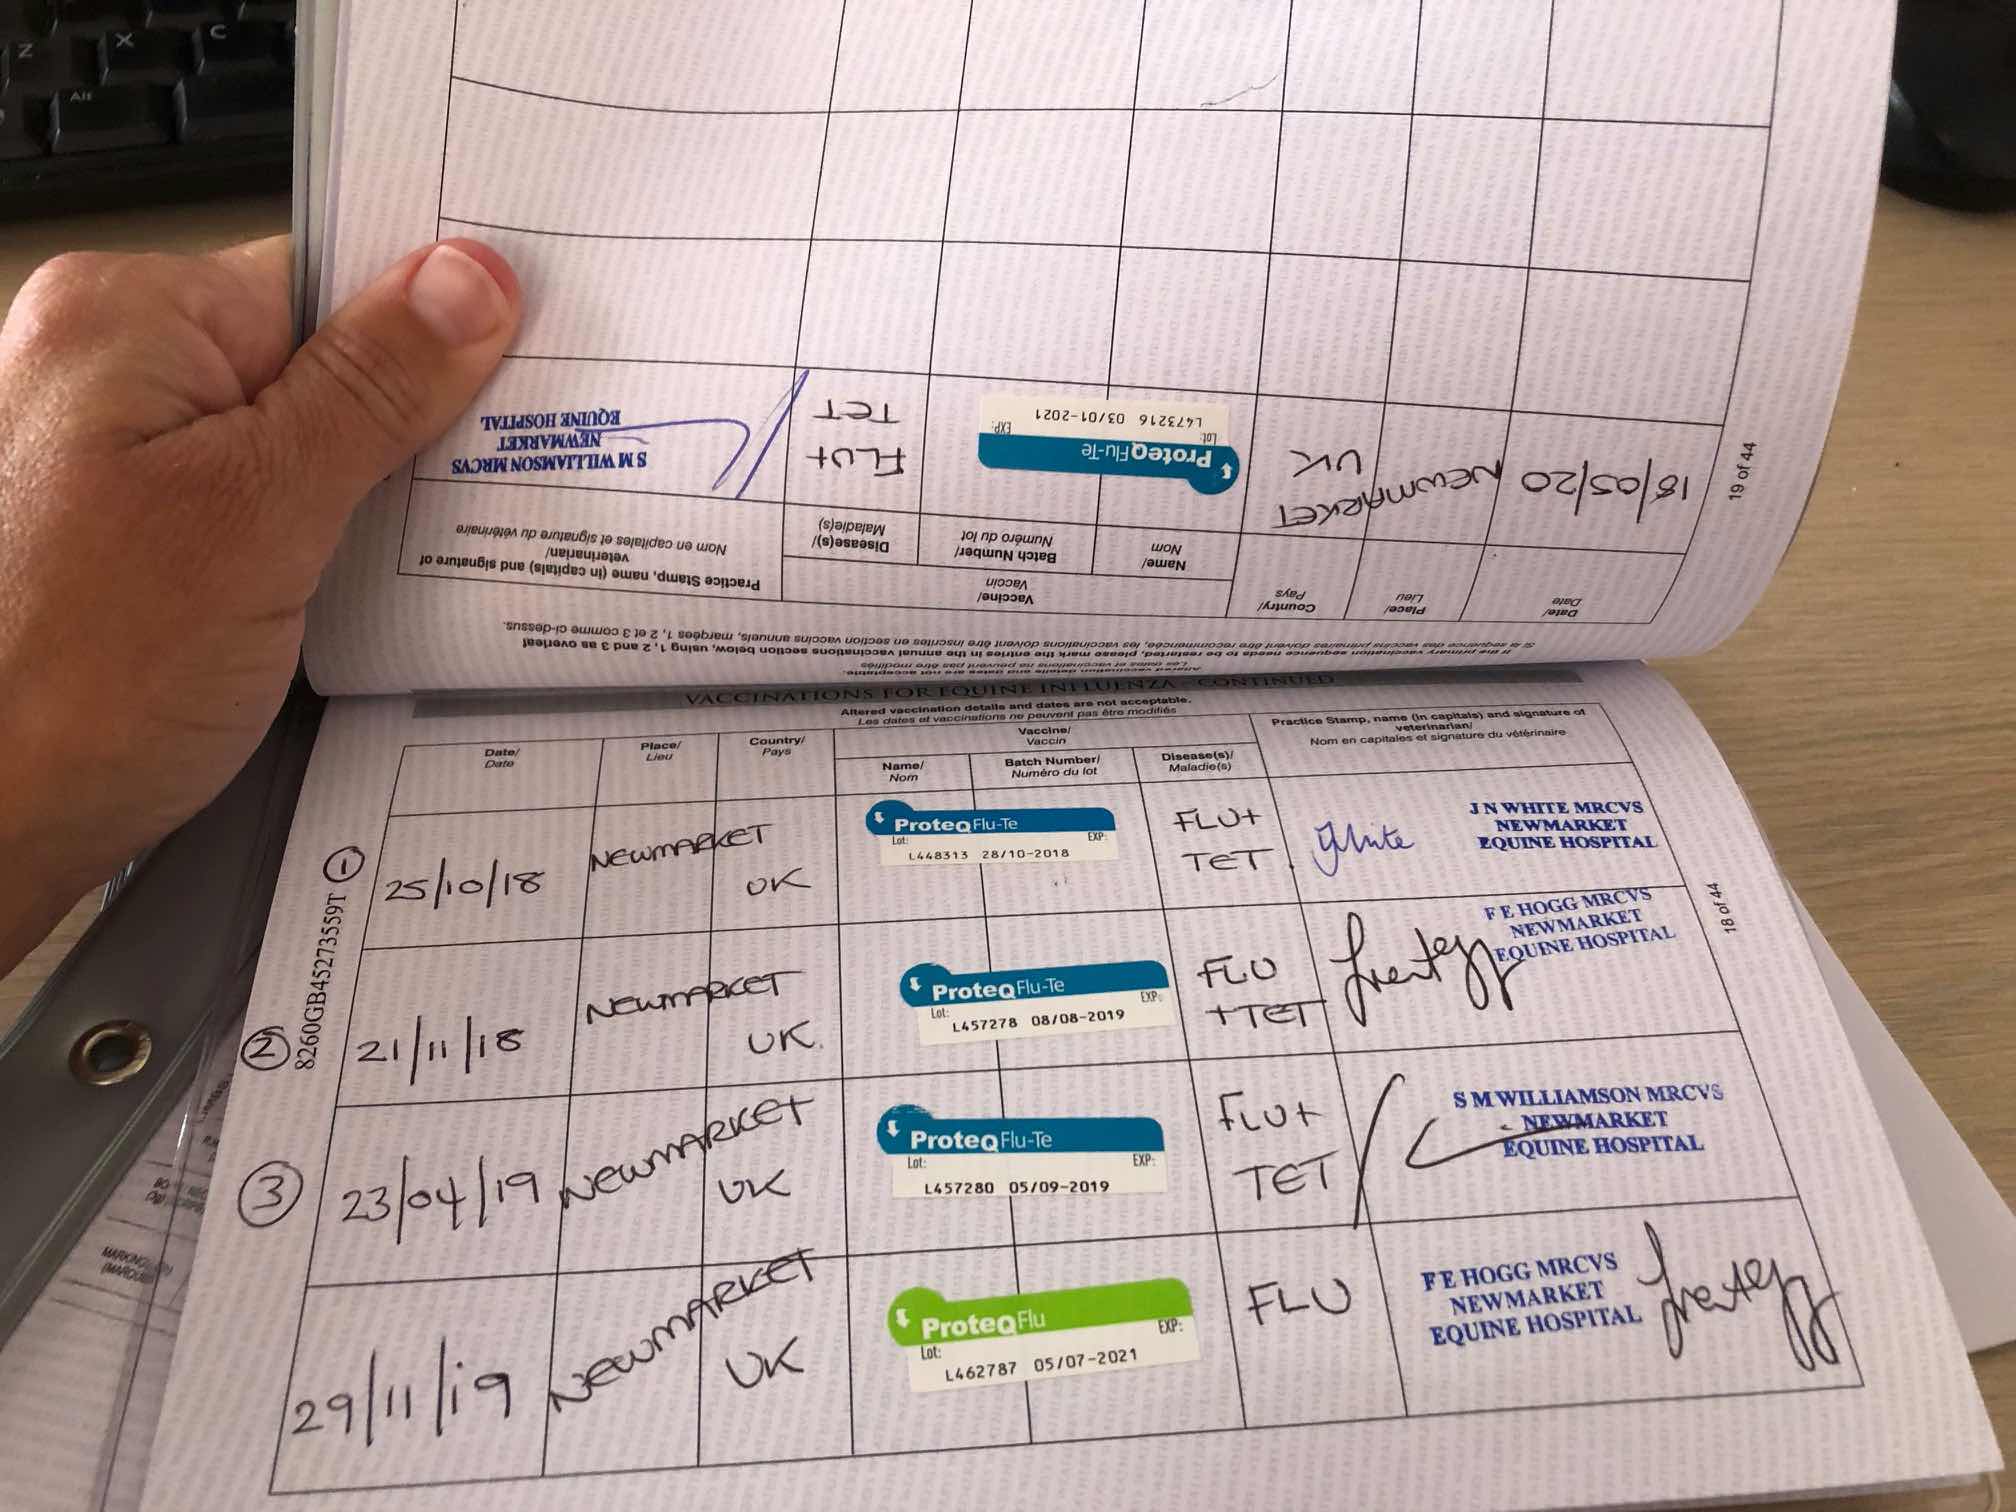 Z X C
Alt
19 of 44
Altered vaccination details and dates are not acceptable.
Les dates et vaccinations ne peuvent pas être modifiés
If the primary vaccination sequence needs to be restarted, please mark the entries in the annual vaccinations section below, using 1, 2 and 3 as overleaf
Si la séquence des vaccins primaires doivent être recommencée, les vaccinations doivent être inscrites en section vaccins annuels, marqées 1, 2 et 3 comme ci-dessus.
Date/
Date
Place/
Lieu
Country/
Pays
Vaccine/
Vaccin
Name/
Nom
Batch Number/
Numéro du lot
Disease(s)/
Maladie(s)
Practice Stamp, name (in capitals) and signature of
veterinarian/
Nom en capitales et signature du vétérinaire
18/05/20
NEWMARKET
UK
ProteqFlu-Te
Lot: EXP:
L473216 03/01-2021
FLU+
TET
S M WILLIAMSON MRCVS
NEWMARKET
EQUINE HOSPITAL
VACCINATIONS FOR EQUINE INFLUENZA - CONTINUED
Altered vaccination details and dates are not acceptable.
Les dates et vaccinations ne peuvent pas être modifiés
Date/
Date
Place/
Lieu
Country/
Pays
Vaccine/
Vaccin
Name/
Nom
Batch Number/
Numéro du lot
Disease(s)/
Maladie(s)
Practice Stamp, name (in capitals) and signature of
veterinarian/
Nom en capitales et signature du vétérinaire
8260GB445273559T
18 of 44
1
25/10/18
NEWMARKET
UK
ProteqFlu-Te
Lot: EXP:
L448313 28/10-2018
FLU+
TET
JWhite
J N WHITE MRCVS
NEWMARKET
EQUINE HOSPITAL
2
21/11/18
NEWMARKET
UK.
ProteqFlu-Te
Lot: EXP:
L457278 08/08-2019
FLU
+TET
F E HOGG MRCVS
NEWMARKET
EQUINE HOSPITAL
3
23/04/19
NEWMARKET
UK
ProteqFlu-Te
Lot: EXP:
L457280 05/09-2019
FLU+
TET
S M WILLIAMSON MRCVS
NEWMARKET
EQUINE HOSPITAL
29/11/19
NEWMARKET
UK
ProteqFlu
Lot: EXP:
L462787 05/07-2021
FLU
F E HOGG MRCVS
NEWMARKET
EQUINE HOSPITAL